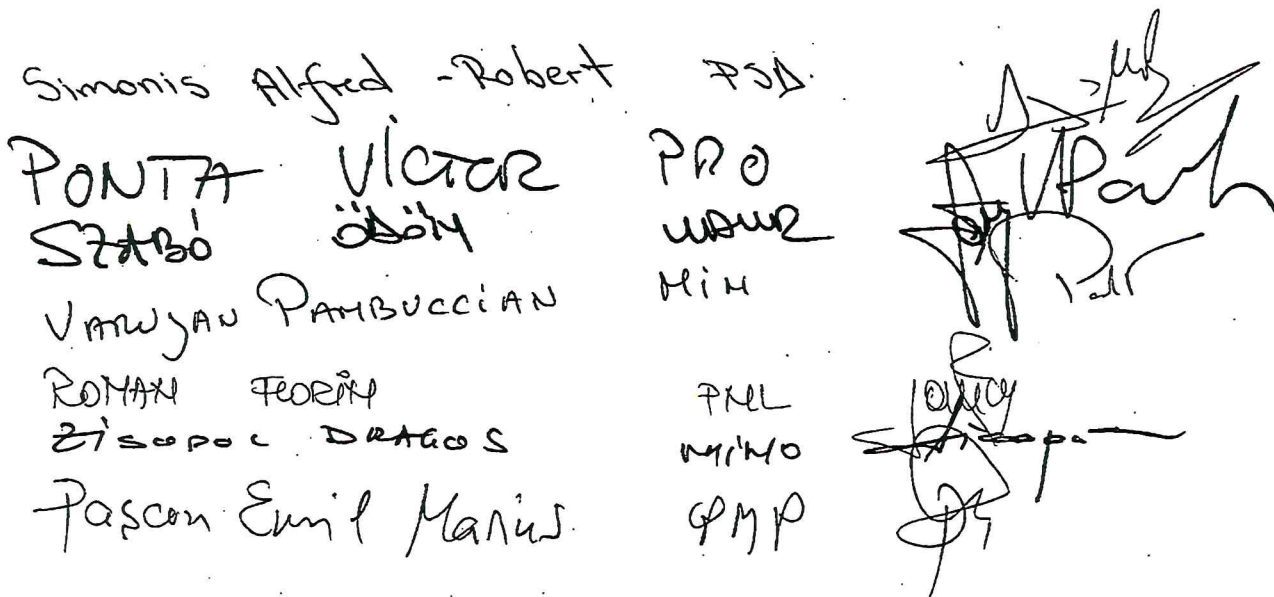 Simonis Alfred-Robert PSD
PONTA VICTOR PRO VPonta
SZABÓ ÖDÖN UDMR
VARUJAN PAMBUCCIAN MIN
ROMAN FLORIN PNL
ZISOPOL DRAGOS MINO
Pașcan Emil Marius PMP